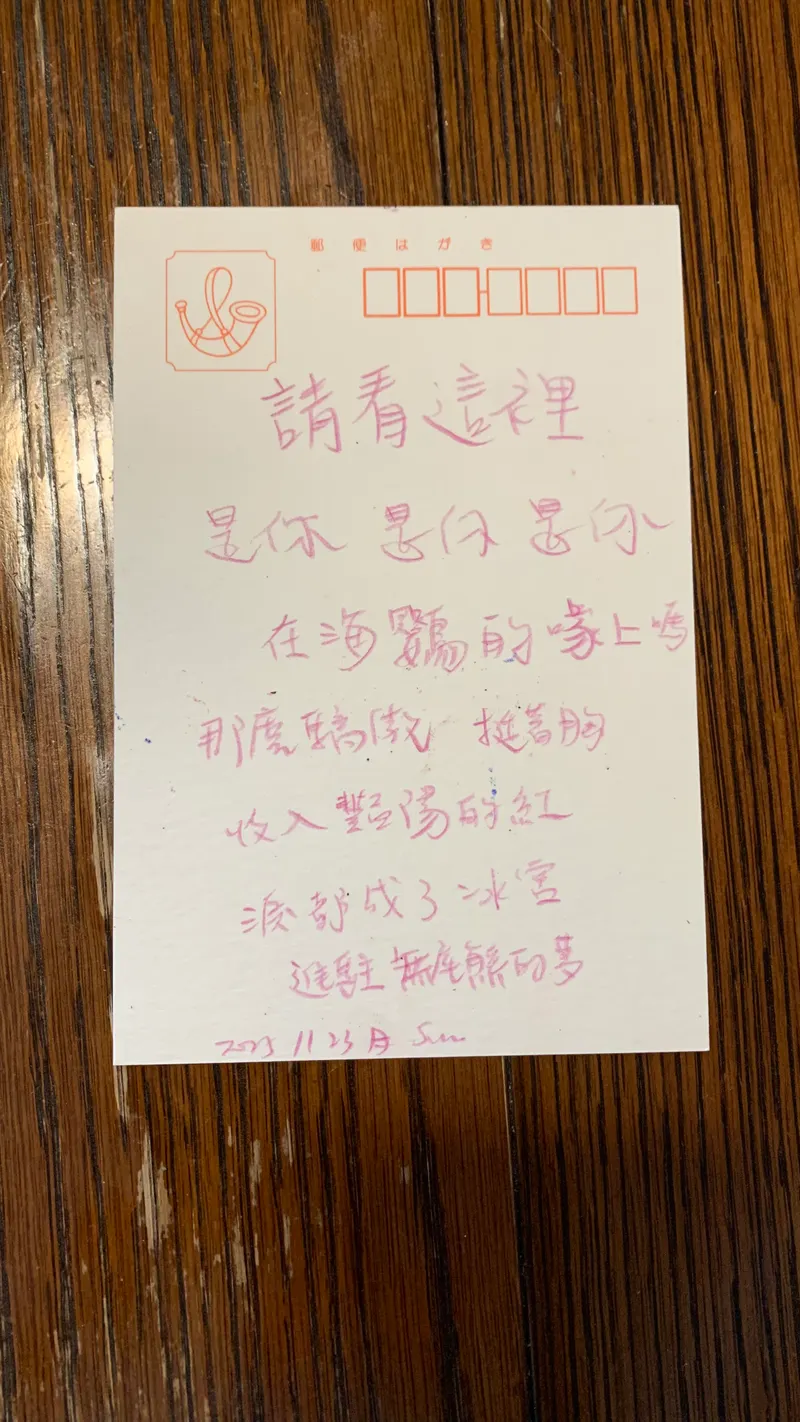 郵便はがき
請看這裡
是你 是你 是你
在海鷗的喙上嗎
那麼驕傲 挺著胸
收入豔陽的紅
淚都成了冰宮
進駐無尾熊的夢
2025 11 23 日 Sun